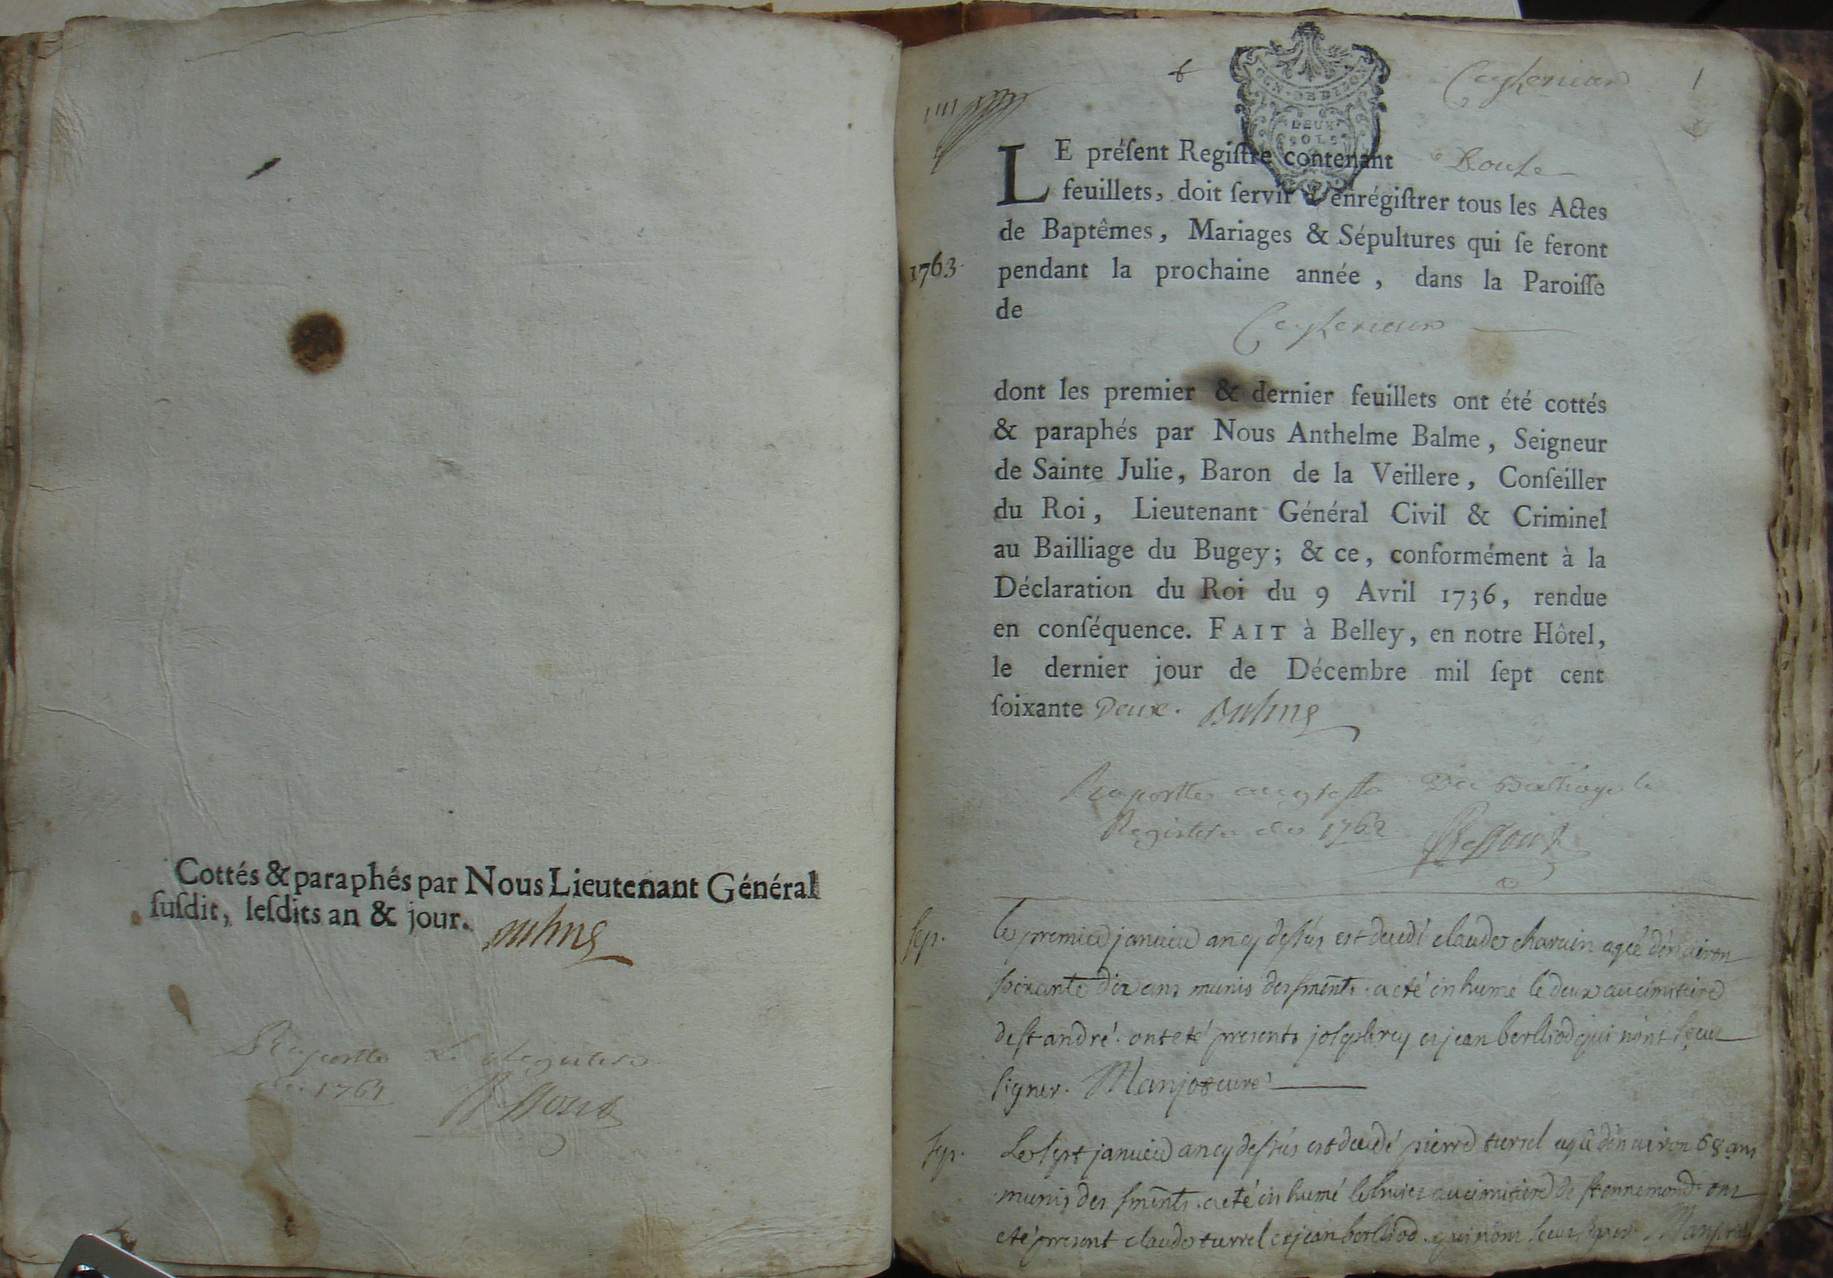 Cottés & paraphés par Nous Lieutenant Général
ſuſdit, leſdits an & jour.
Raportté Le Registre
1761
Ceyzerieux 1
GEN. DE DIJON
DEUX
SOLS
LE préſent Regiſtre contenant Douze
feuillets, doit ſervir à enrégiſtrer tous les Actes
de Baptêmes, Mariages & Sépultures qui ſe feront
1763.
pendant la prochaine année, dans la Paroiſſe
de
Ceyzerieux
dont les premier & dernier feuillets ont été cottés
& paraphés par Nous Anthelme Balme, Seigneur
de Sainte Julie, Baron de la Veillere, Conſeiller
du Roi, Lieutenant Général Civil & Criminel
au Bailliage du Bugey; & ce, conformément à la
Déclaration du Roi du 9 Avril 1736, rendue
en conſéquence. FAIT à Belley, en notre Hôtel,
le dernier jour de Décembre mil ſept cent
ſoixante Deux. Balme
Raportté au greffe Du Bailliage le
Registre de 1762
Sep. le premier janvier an cy dessus est decedé claude charvin agé d'environ
soixante dix ans munis des sments. a eté inhumé le deux au cimitiere
de st andré. ont eté presents joseph rey et jean berlliod qui n'ont sceu
signer. Manjot curé
Sep. Le sept janvier an cy dessus est decedé pierre turrel agé d'environ 68 ans
munis des sments. a eté inhumé le huict au cimitiere de st onnemond ont
eté present claude turrel et jean berlliod qui n'ont sceu signer Manjot